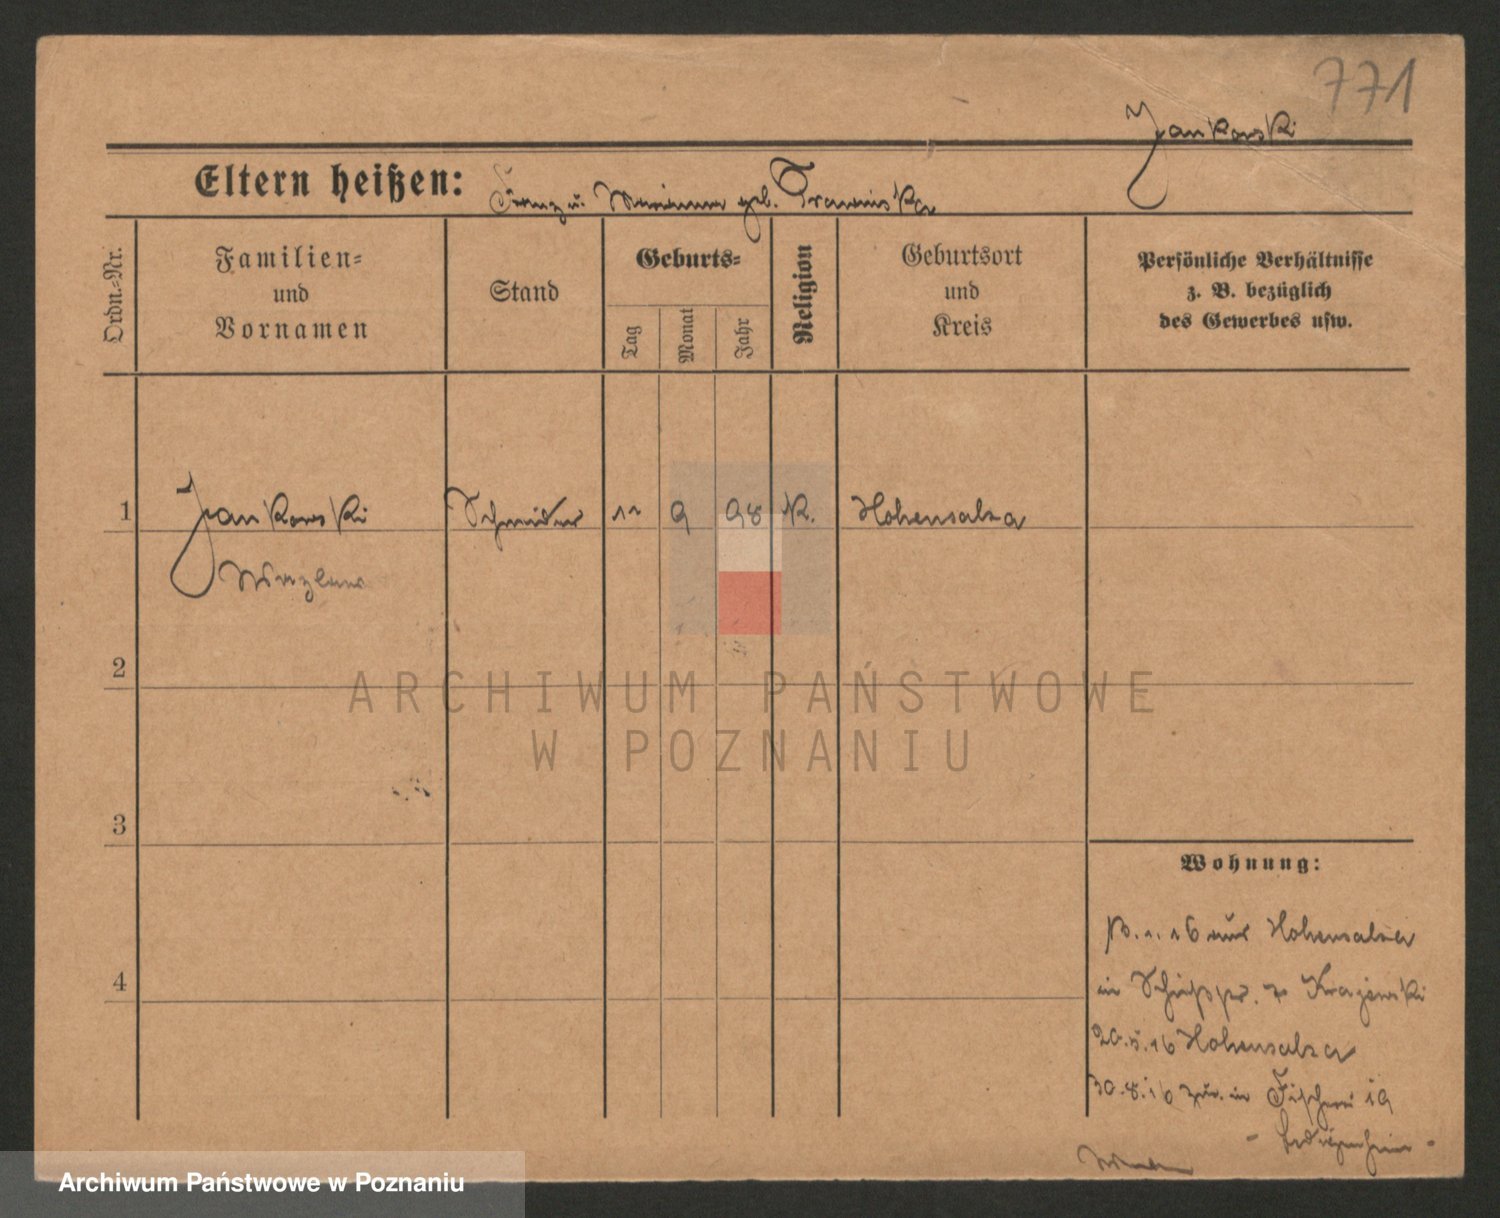 771
Jankowski
Eltern heißen: Franz u. Marianna geb.
Ordn.-Nr.
Familien-
und
Vornamen
Stand
Geburts-
Tag
Monat
Jahr
Religion
Geburtsort
und
Kreis
Persönliche Verhältnisse
z. B. bezüglich
des Gewerbes usw.
1 Jankowski Schneider 11 9 98 K. Hohensalza
2
ARCHIWUM PAŃSTWOWE
W POZNANIU
3
Wohnung:
aus Hohensalza
4
in
20.5.16 Hohensalza
30.8.16 zur. in Fischerei 19
Archiwum Państwowe w Poznaniu